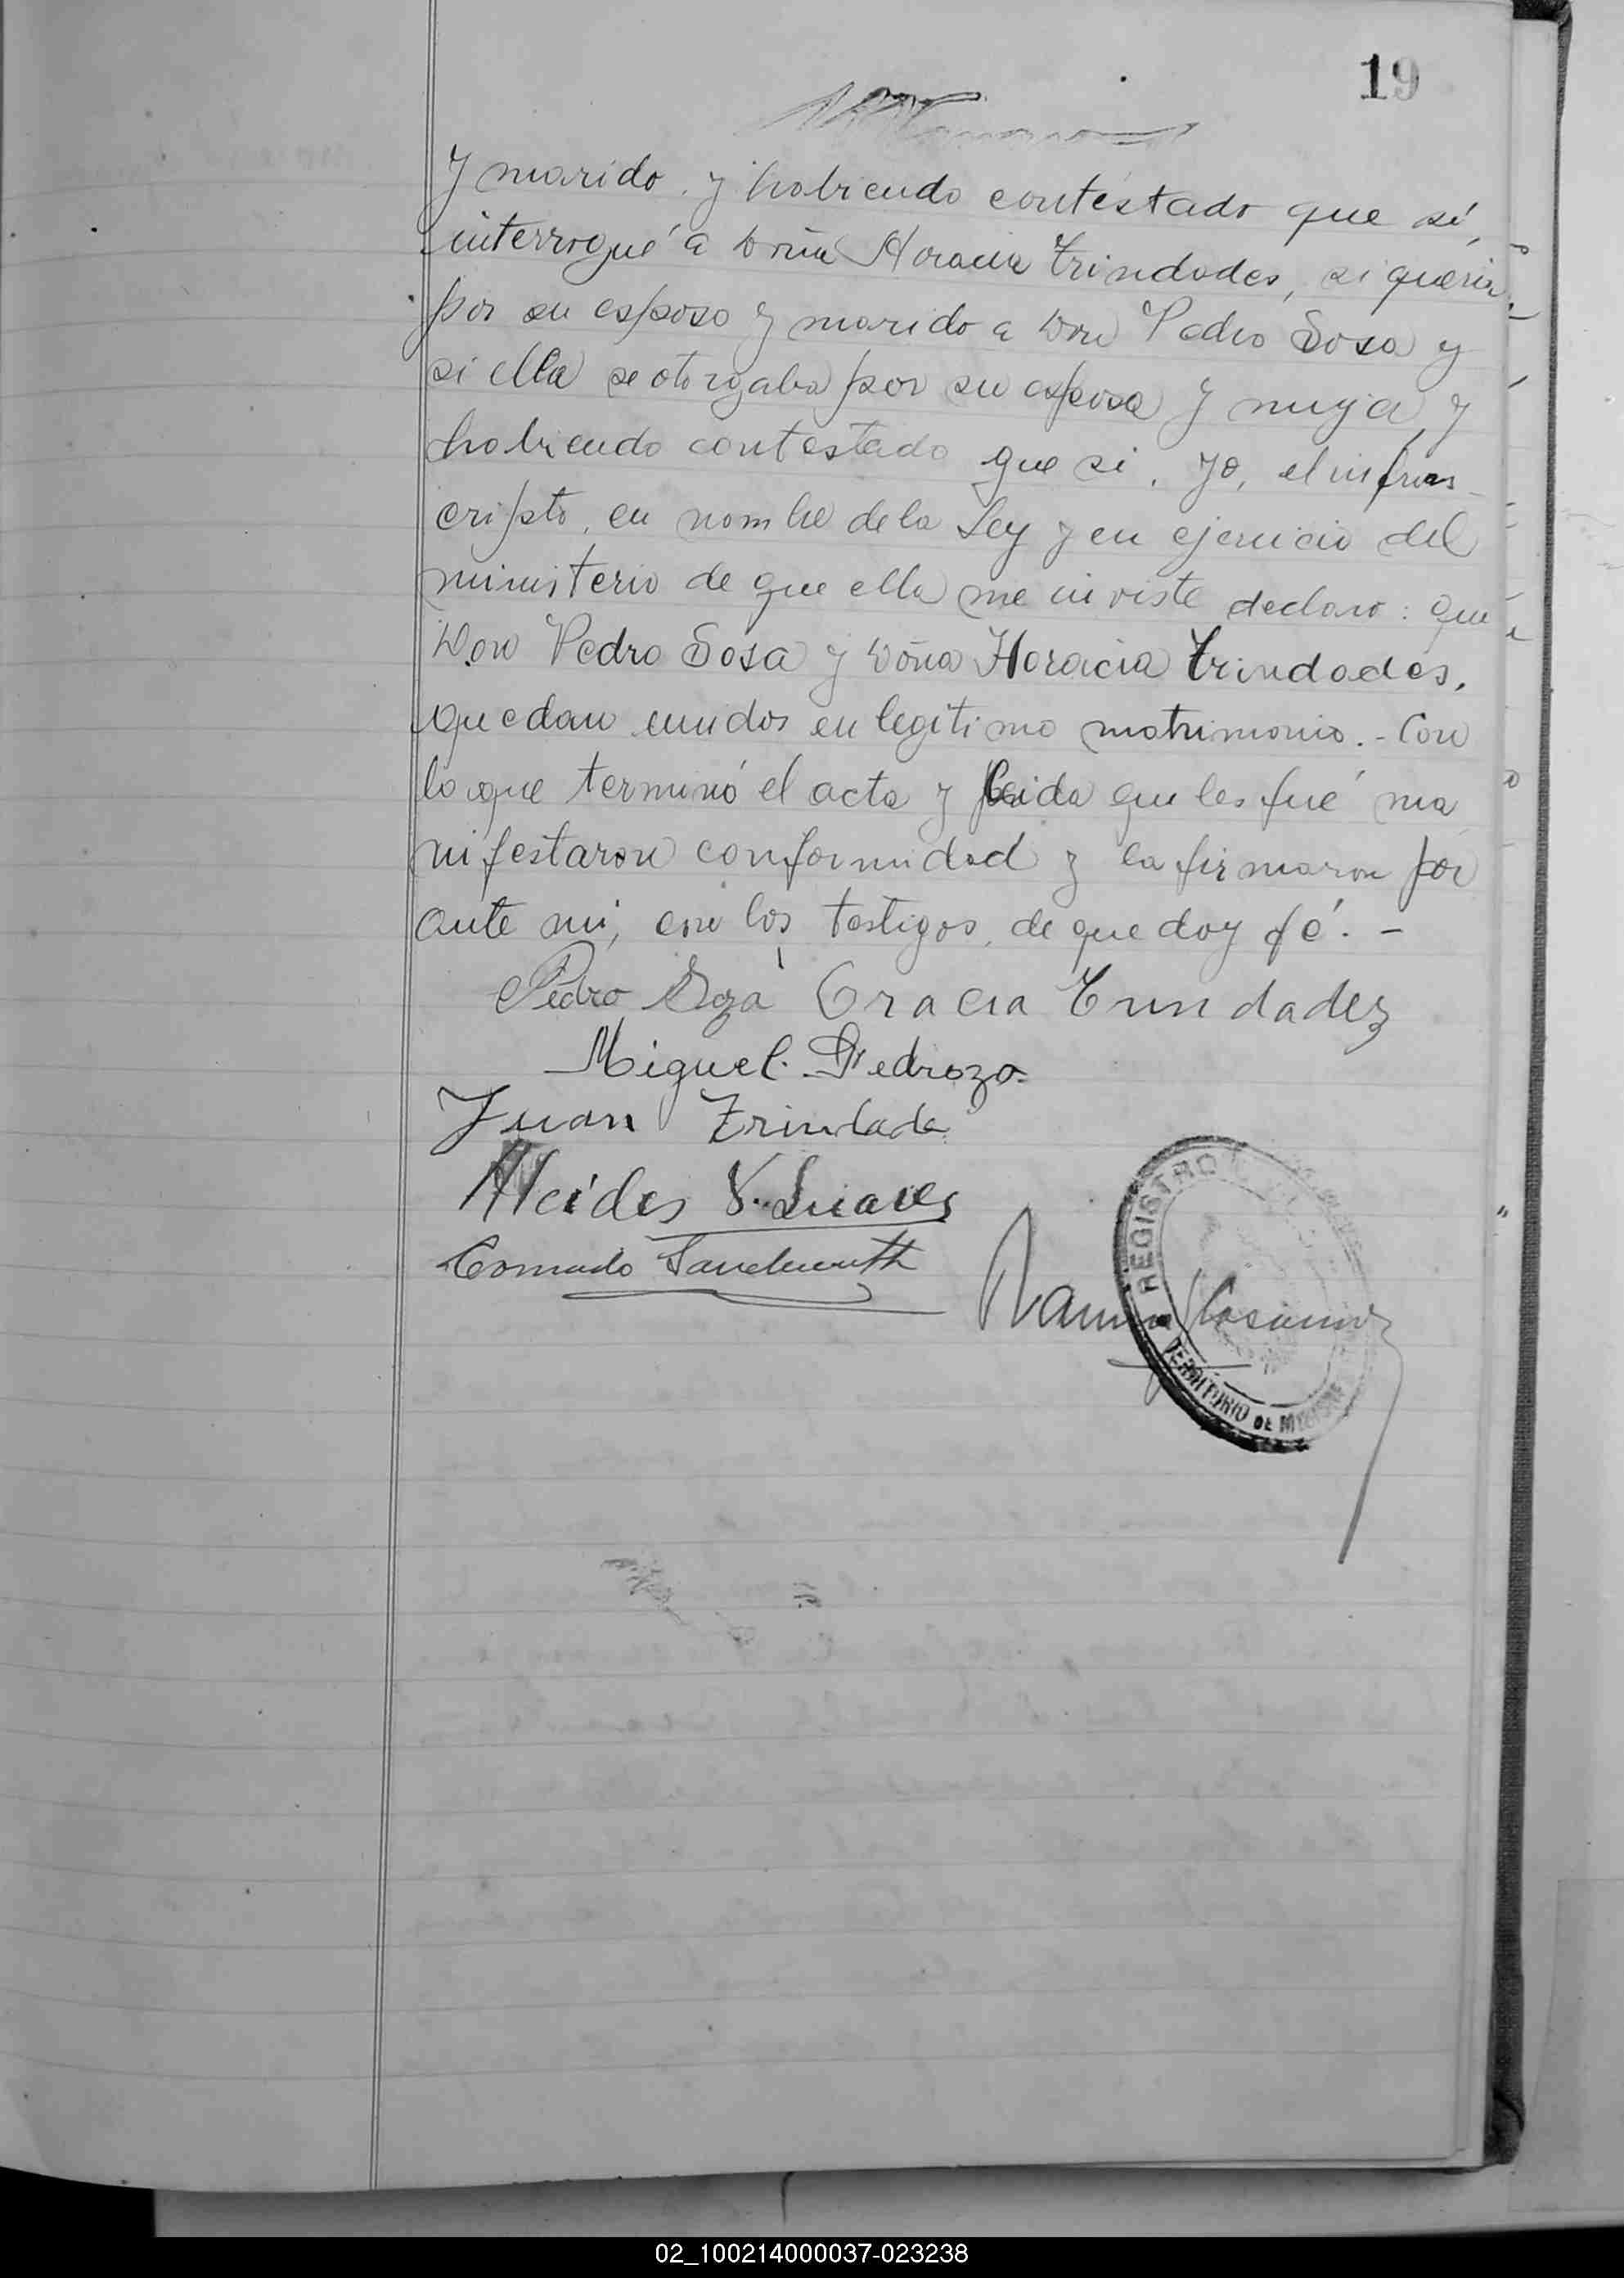 19
y marido, y habiendo contestado que sí,
interrogué a Doña Horacia Trindades, si queria
por su esposo y marido a Don Pedro Sosa y
si ella se otorgaba por su esposa y mujer, y
habiendo contestado que si, yo, el infras-
cripto, en nombre de la Ley y en ejercicio del
ministerio de que ella me inviste declaro: que
Don Pedro Sosa y Doña Horacia Trindades,
quedan unidos en legítimo matrimonio.- Con
lo que terminó el acta y leida que les fué ma
nifestaron conformidad y la firmaron por
ante mi, con los testigos, de que doy fé. -
Pedro Soza Oracia Trindadez
Miguel Pedrozo
Juan Trindade
Alcides V. Suarez
Conrado
Ramon
REGISTRO
TERRITORIO DE MISIONES
02_100214000037-023238